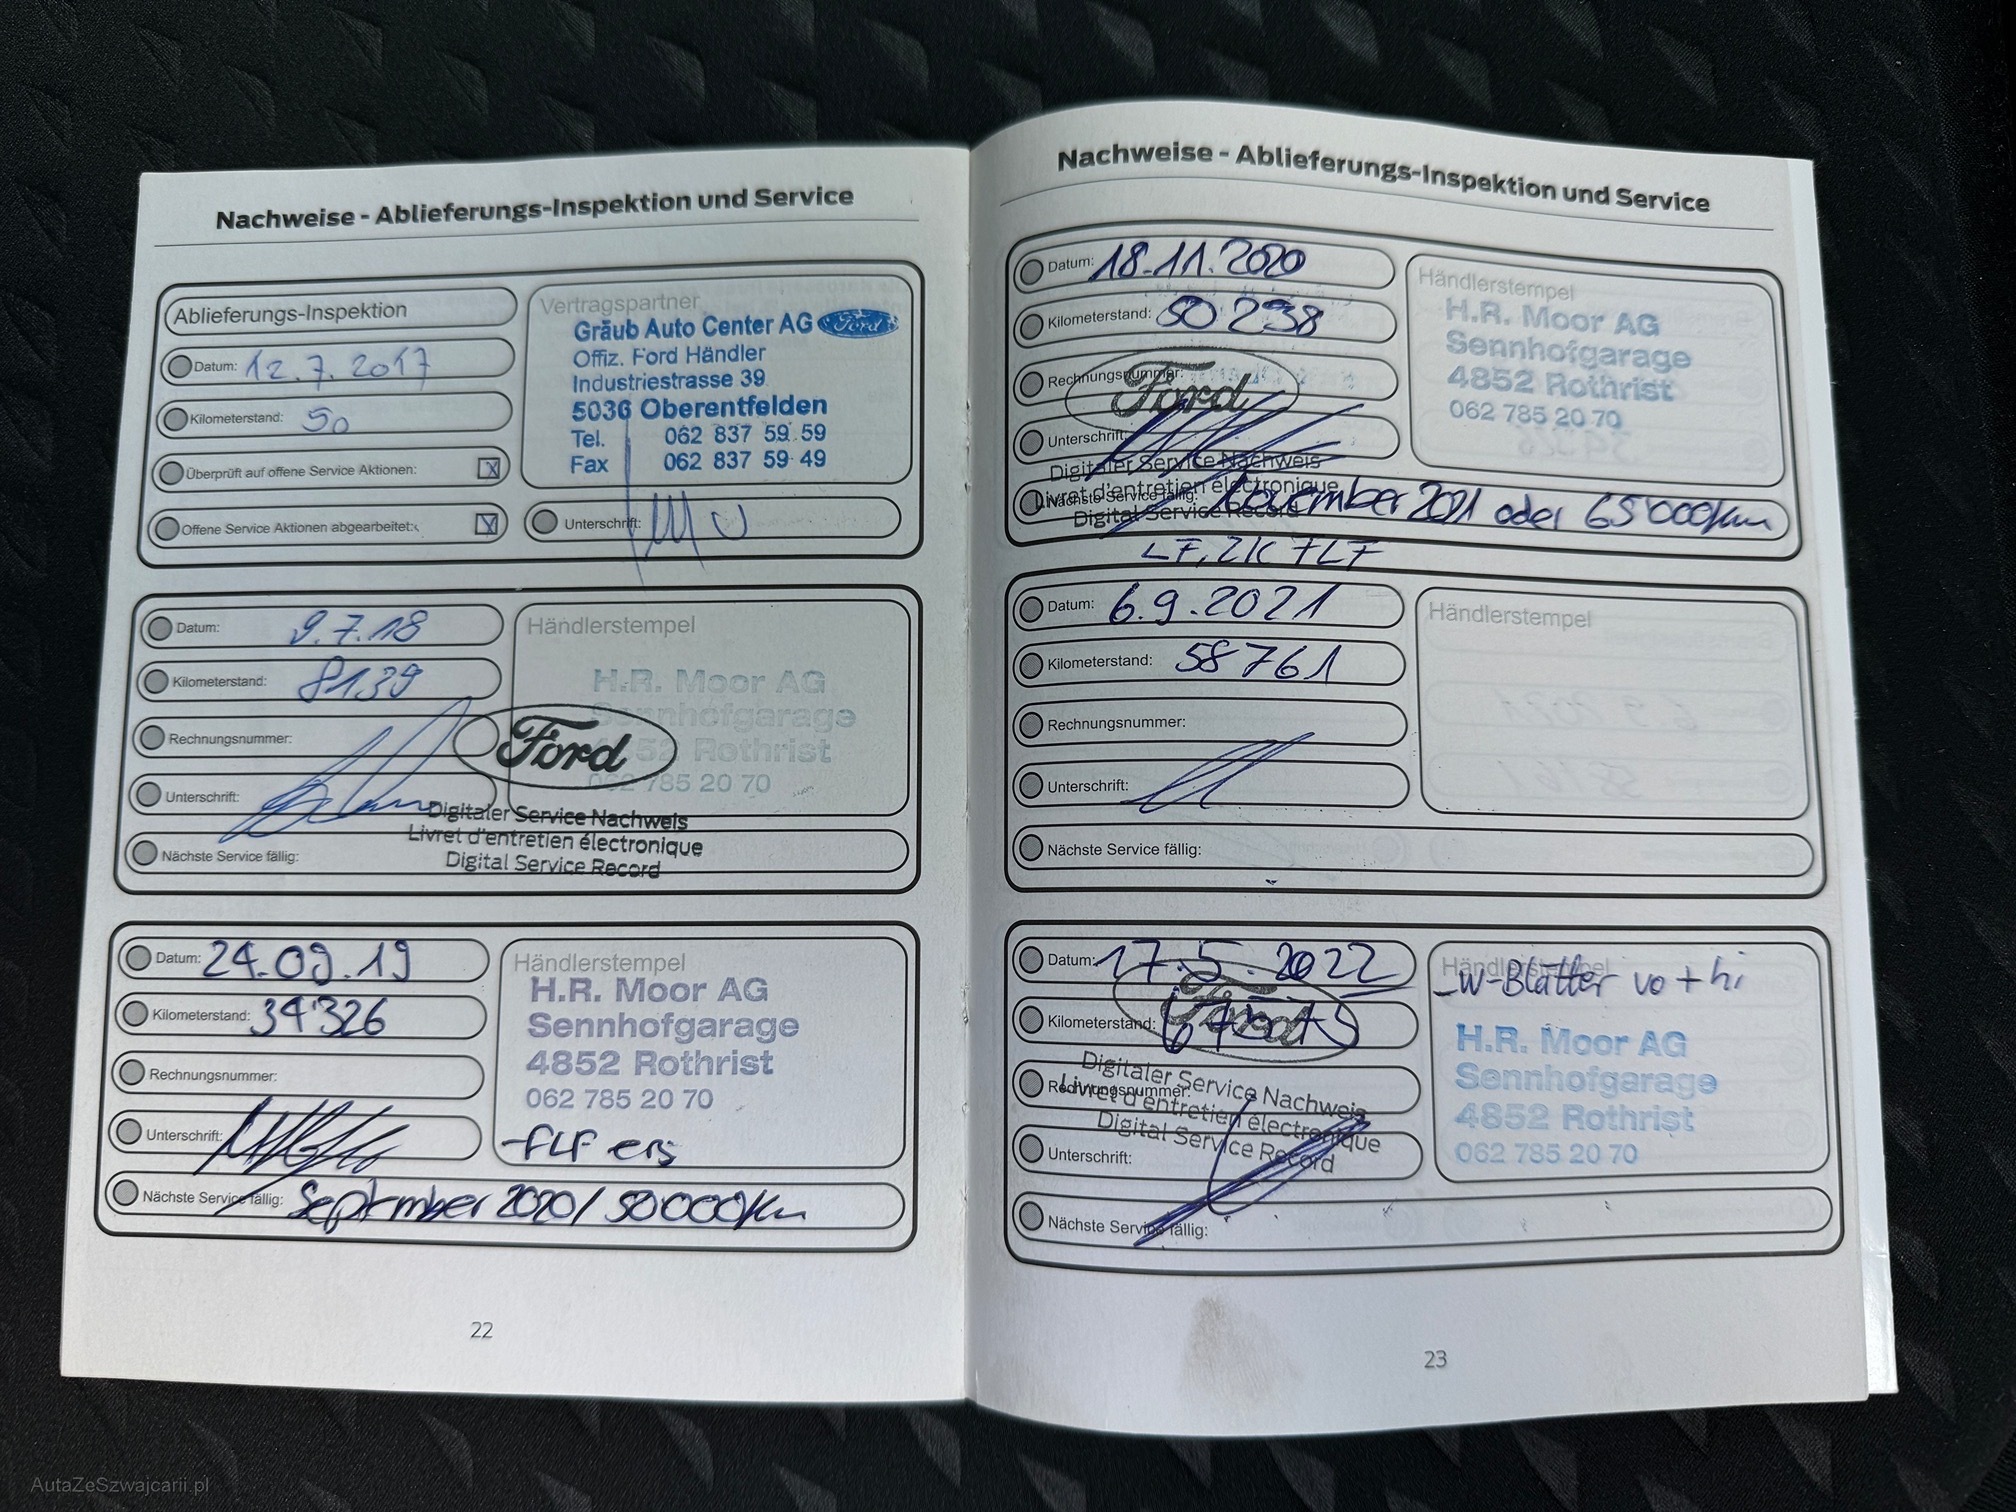 Nachweise - Ablieferungs-Inspektion und Service
Ablieferungs-Inspektion
Datum: 12.7.2017
Kilometerstand: 50
Überprüft auf offene Service Aktionen: X
Offene Service Aktionen abgearbeitet: X
Vertragspartner
Gräub Auto Center AG Ford
Offiz. Ford Händler
Industriestrasse 39
5036 Oberentfelden
Tel. 062 837 59 59
Fax 062 837 59 49
Unterschrift:
Datum: 9.7.18
Kilometerstand: 8139
Rechnungsnummer:
Unterschrift:
Nächste Service fällig:
Händlerstempel
H.R. Moor AG
Sennhofgarage
4852 Rothrist
062 785 20 70
Ford
Digitaler Service Nachweis
Livret d'entretien électronique
Digital Service Record
Datum: 24.09.19
Kilometerstand: 34'326
Rechnungsnummer:
Unterschrift:
Nächste Service fällig: September 2020 / 50'000km
Händlerstempel
H.R. Moor AG
Sennhofgarage
4852 Rothrist
062 785 20 70
-FLF ers
22
Nachweise - Ablieferungs-Inspektion und Service
Datum: 18.11.2020
Kilometerstand: 50 238
Rechnungsnummer:
Unterschrift:
Nächste Service fällig: November 2021 oder 65'000km
Ford
Digitaler Service Nachweis
Livret d'entretien électronique
Digital Service Record
Händlerstempel
H.R. Moor AG
Sennhofgarage
4852 Rothrist
062 785 20 70
LF, ZK + LF
Datum: 6.9.2021
Kilometerstand: 58761
Rechnungsnummer:
Unterschrift:
Nächste Service fällig:
Händlerstempel
Datum: 17.5.2022
Kilometerstand:
Rechnungsnummer:
Unterschrift:
Nächste Service fällig:
Ford
Digitaler Service Nachweis
Livret d'entretien électronique
Digital Service Record
Händlerstempel
-W-Blätter vo + hi
H.R. Moor AG
Sennhofgarage
4852 Rothrist
062 785 20 70
23
AutaZeSzwajcarii.pl